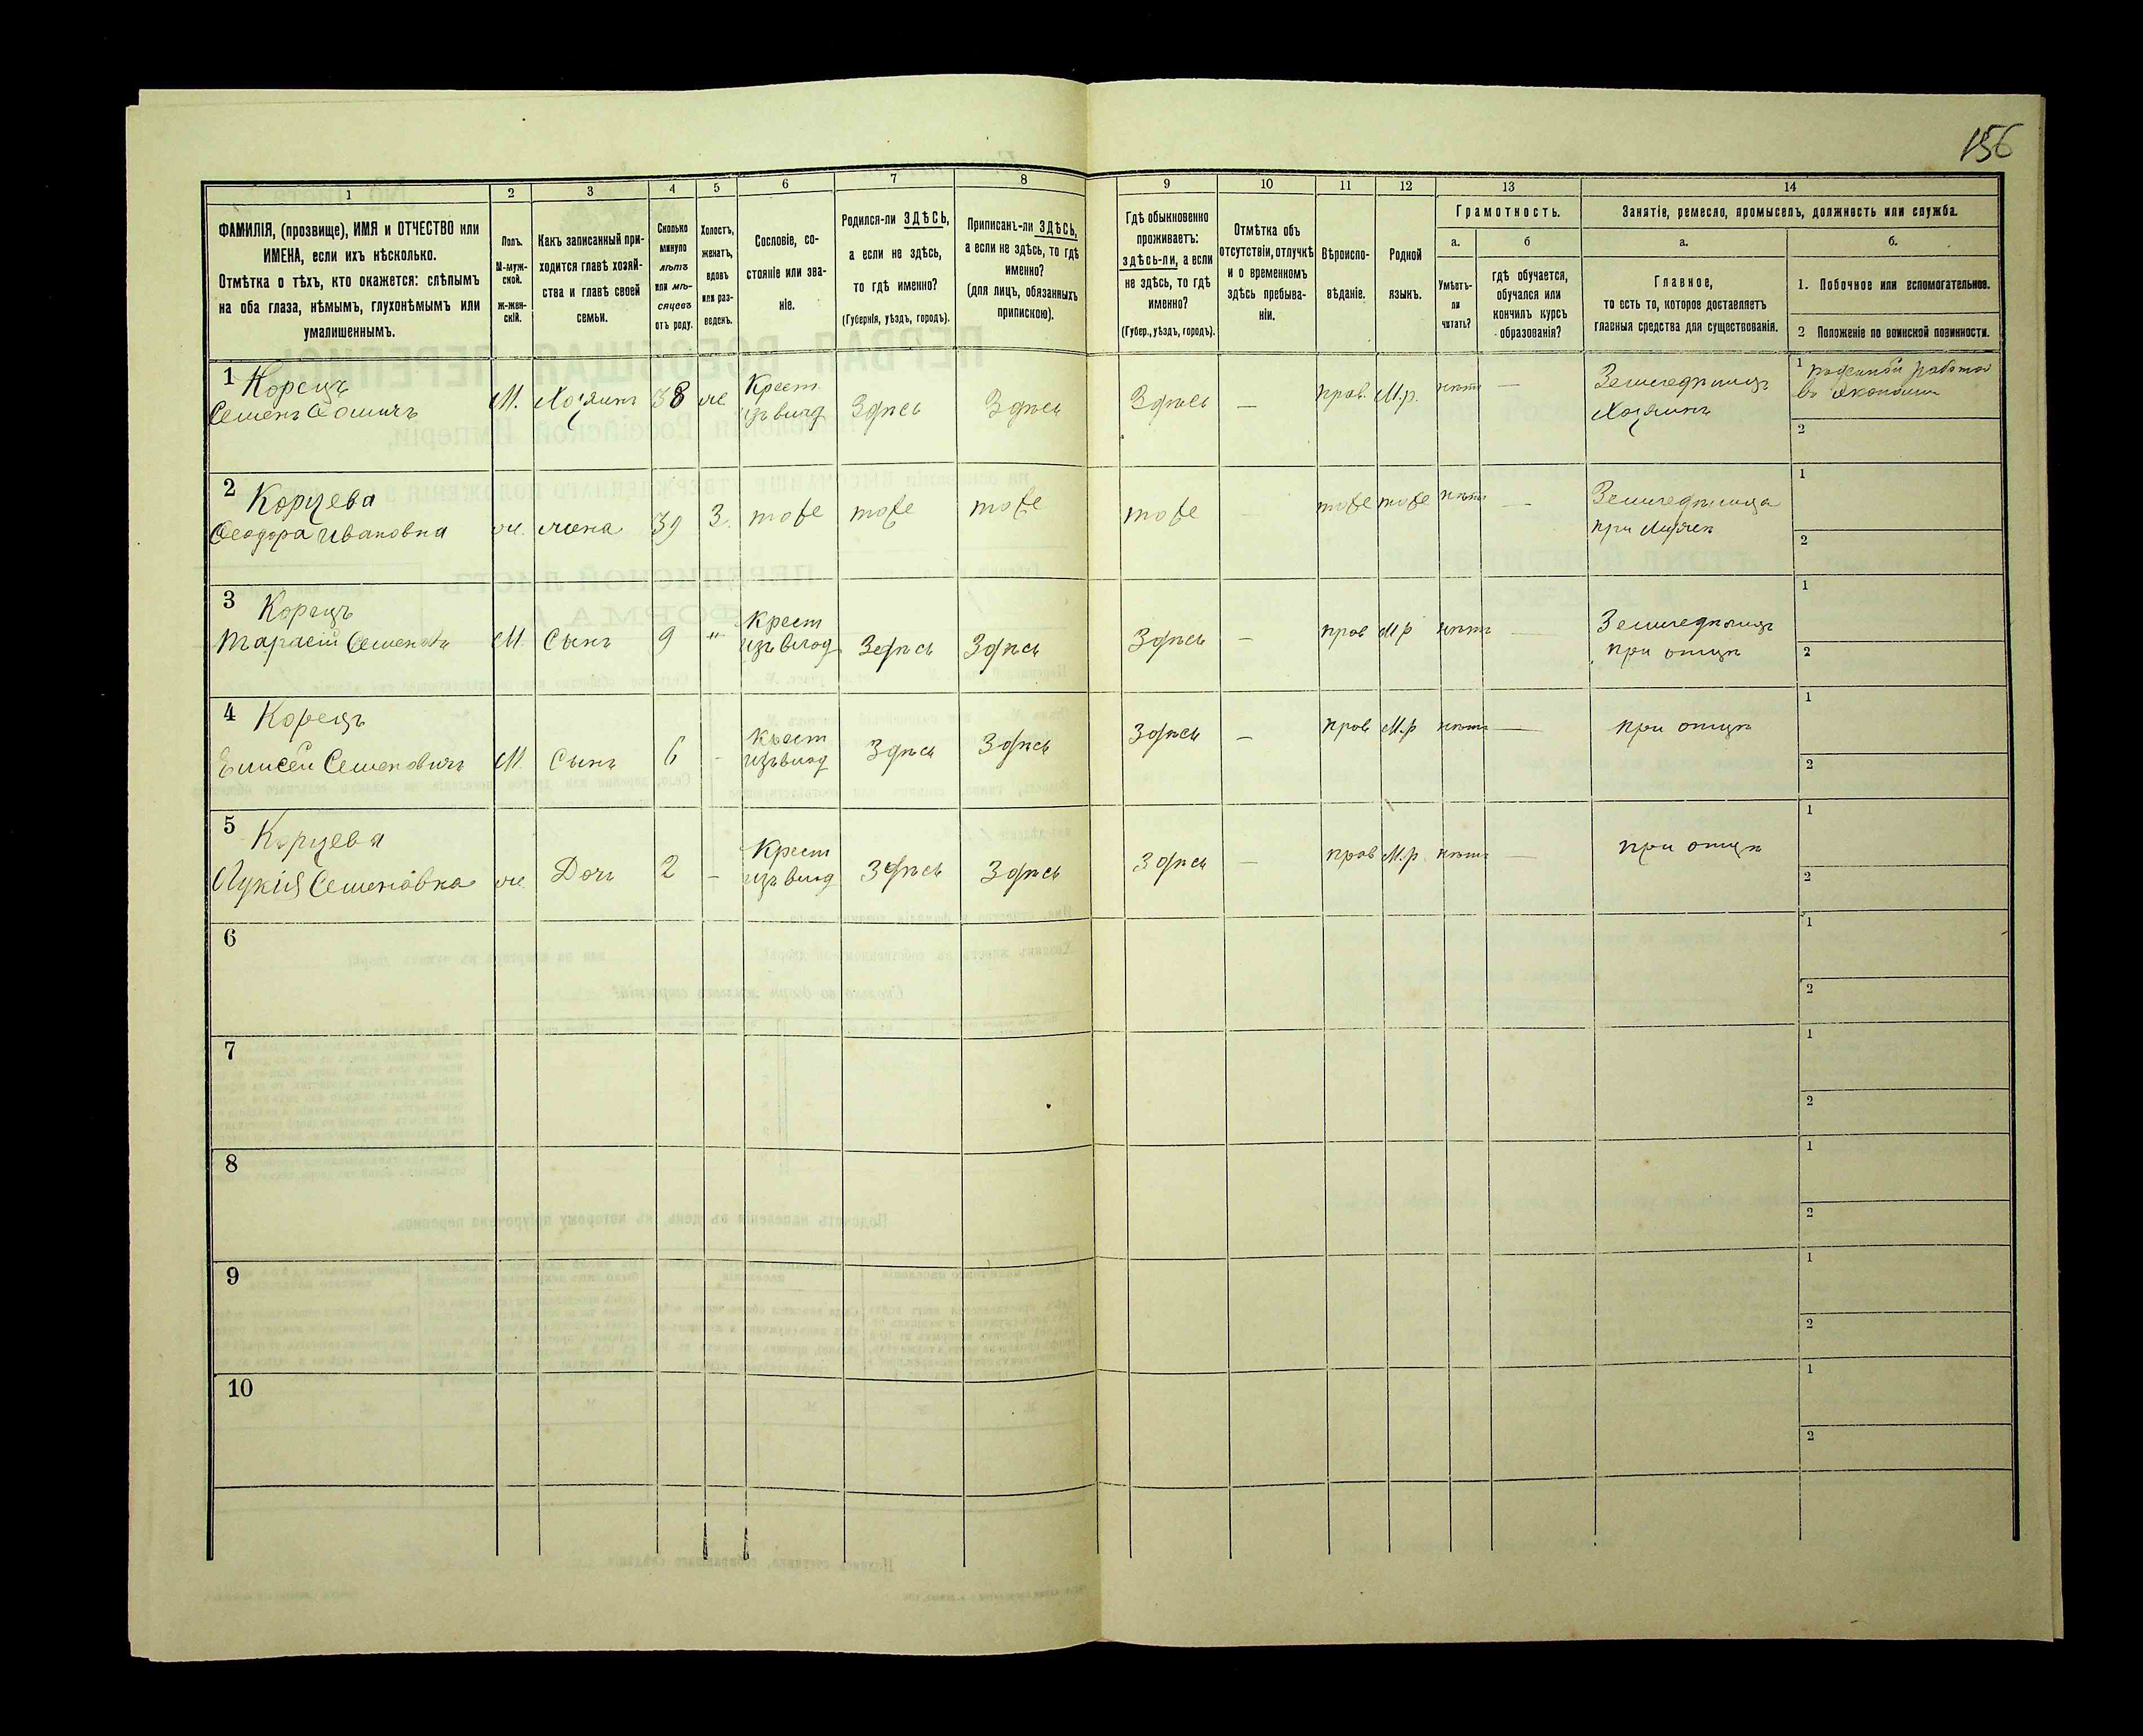 156
1
2
3
4
5
6
7
8
9
10
11
12
13
14
ФАМИЛІЯ, (прозвище), ИМЯ и ОТЧЕСТВО или
ИМЕНА, если ихъ нѣсколько.
Отмѣтка о тѣхъ, кто окажется: слѣпымъ
на оба глаза, нѣмымъ, глухонѣмымъ или
умалишеннымъ.
Полъ.
М-муж-
ской.
Ж-жен-
скій.
Какъ записанный при-
ходится главѣ хозяй-
ства и главѣ своей
семьи.
Сколько
минуло
лѣтъ
или мѣ-
сяцевъ
отъ роду.
Холостъ,
женатъ,
вдовъ
или раз-
веденъ.
Сословіе, со-
стояніе или зва-
ніе.
Родился-ли ЗДѢСЬ,
а если не здѣсь,
то гдѣ именно?
(Губернія, уѣздъ, городъ).
Приписанъ-ли ЗДѢСЬ,
а если не здѣсь, то гдѣ
именно?
(для лицъ, обязанныхъ
припискою).
Гдѣ обыкновенно
проживаетъ:
здѣсь-ли, а если
не здѣсь, то гдѣ
именно?
(Губер., уѣздъ, городъ).
Отмѣтка объ
отсутствіи, отлучкѣ
и о временномъ
здѣсь пребыва-
ніи.
Вѣроиспо-
вѣданіе.
Родной
языкъ.
Грамотность.
а.
Умѣетъ-
ли
читать?
б
гдѣ обучается,
обучался или
кончилъ курсъ
образованія?
Занятіе, ремесло, промыселъ, должность или служба.
а.
Главное,
то есть то, которое доставляетъ
главныя средства для существованія.
б.
1. Побочное или вспомогательное.
2 Положеніе по воинской повинности.
1 Корецъ
Семенъ Ѳомичъ
М. Хозяинъ 38 же Крест
изъ влад Здѣсь Здѣсь Здѣсь — прав. М.р. нѣтъ — Земледѣлецъ
Хозяинъ
1 поденной работой
въ Экономіи
2
2 Корцева
Ѳеодора Ивановна
ж. жена 39 З. тоже тоже тоже тоже — тоже тоже нѣтъ — Земледѣлица
при мужѣ
1
2
3 Корецъ
Тарасій Семеновъ
М. Сынъ 9 " Крест
изъ влад Здѣсь Здѣсь Здѣсь — прав М.р нѣтъ — Земледѣлецъ
при отцѣ
1
2
4 Корецъ
Елисей Семеновичъ
М. Сынъ 6 - Крест
изъ влад Здѣсь Здѣсь Здѣсь — прав М.р нѣтъ — при отцѣ
1
2
5 Корцева
Лукія Семеновна
ж. Дочь 2 — Крест
изъ влад Здѣсь Здѣсь Здѣсь — прав М.р. нѣтъ — при отцѣ
1
2
6
1
2
7
1
2
8
1
2
9
1
2
10
1
2